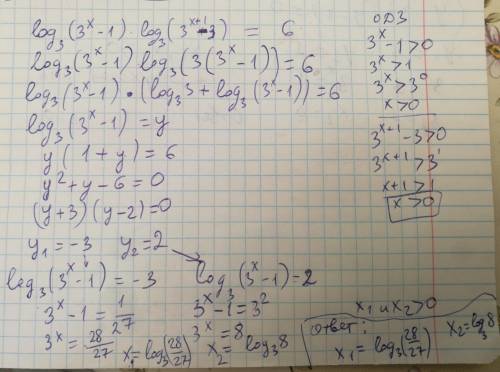 log₃(3ˣ-1)·log₃(3ˣ⁺¹-3) = 6
log₃(3ˣ-1) log₃(3(3ˣ-1))=6
log₃(3ˣ-1)•(log₃3+log₃(3ˣ-1))=6
log₃(3ˣ-1)=y
y(1+y)=6
y²+y-6=0
(y+3)(y-2)=0
y₁=-3 y₂=2
log₃(3ˣ-1)=-3 log₃(3ˣ-1)=2
3ˣ-1=1/27 3ˣ-1=3²
3ˣ=28/27 3ˣ=8
x₁=log₃(28/27) x₂=log₃8
ОДЗ
3ˣ-1>0
3ˣ>1
3ˣ>3⁰
x>0
3ˣ⁺¹-3>0
3ˣ⁺¹>3¹
x+1>1
x>0
x₁ и x₂>0
Ответ:
x₁=log₃(28/27) x₂=log₃8